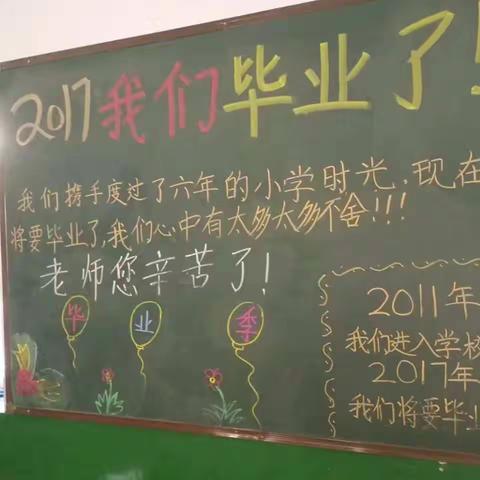 2017我们毕业了!
我们携手度过了六年的小学时光,现在
将要毕业了,我们心中有太多太多不舍!!!
老师您辛苦了!
毕业季
2011年
我们进入学校
2017年
我们将要毕业